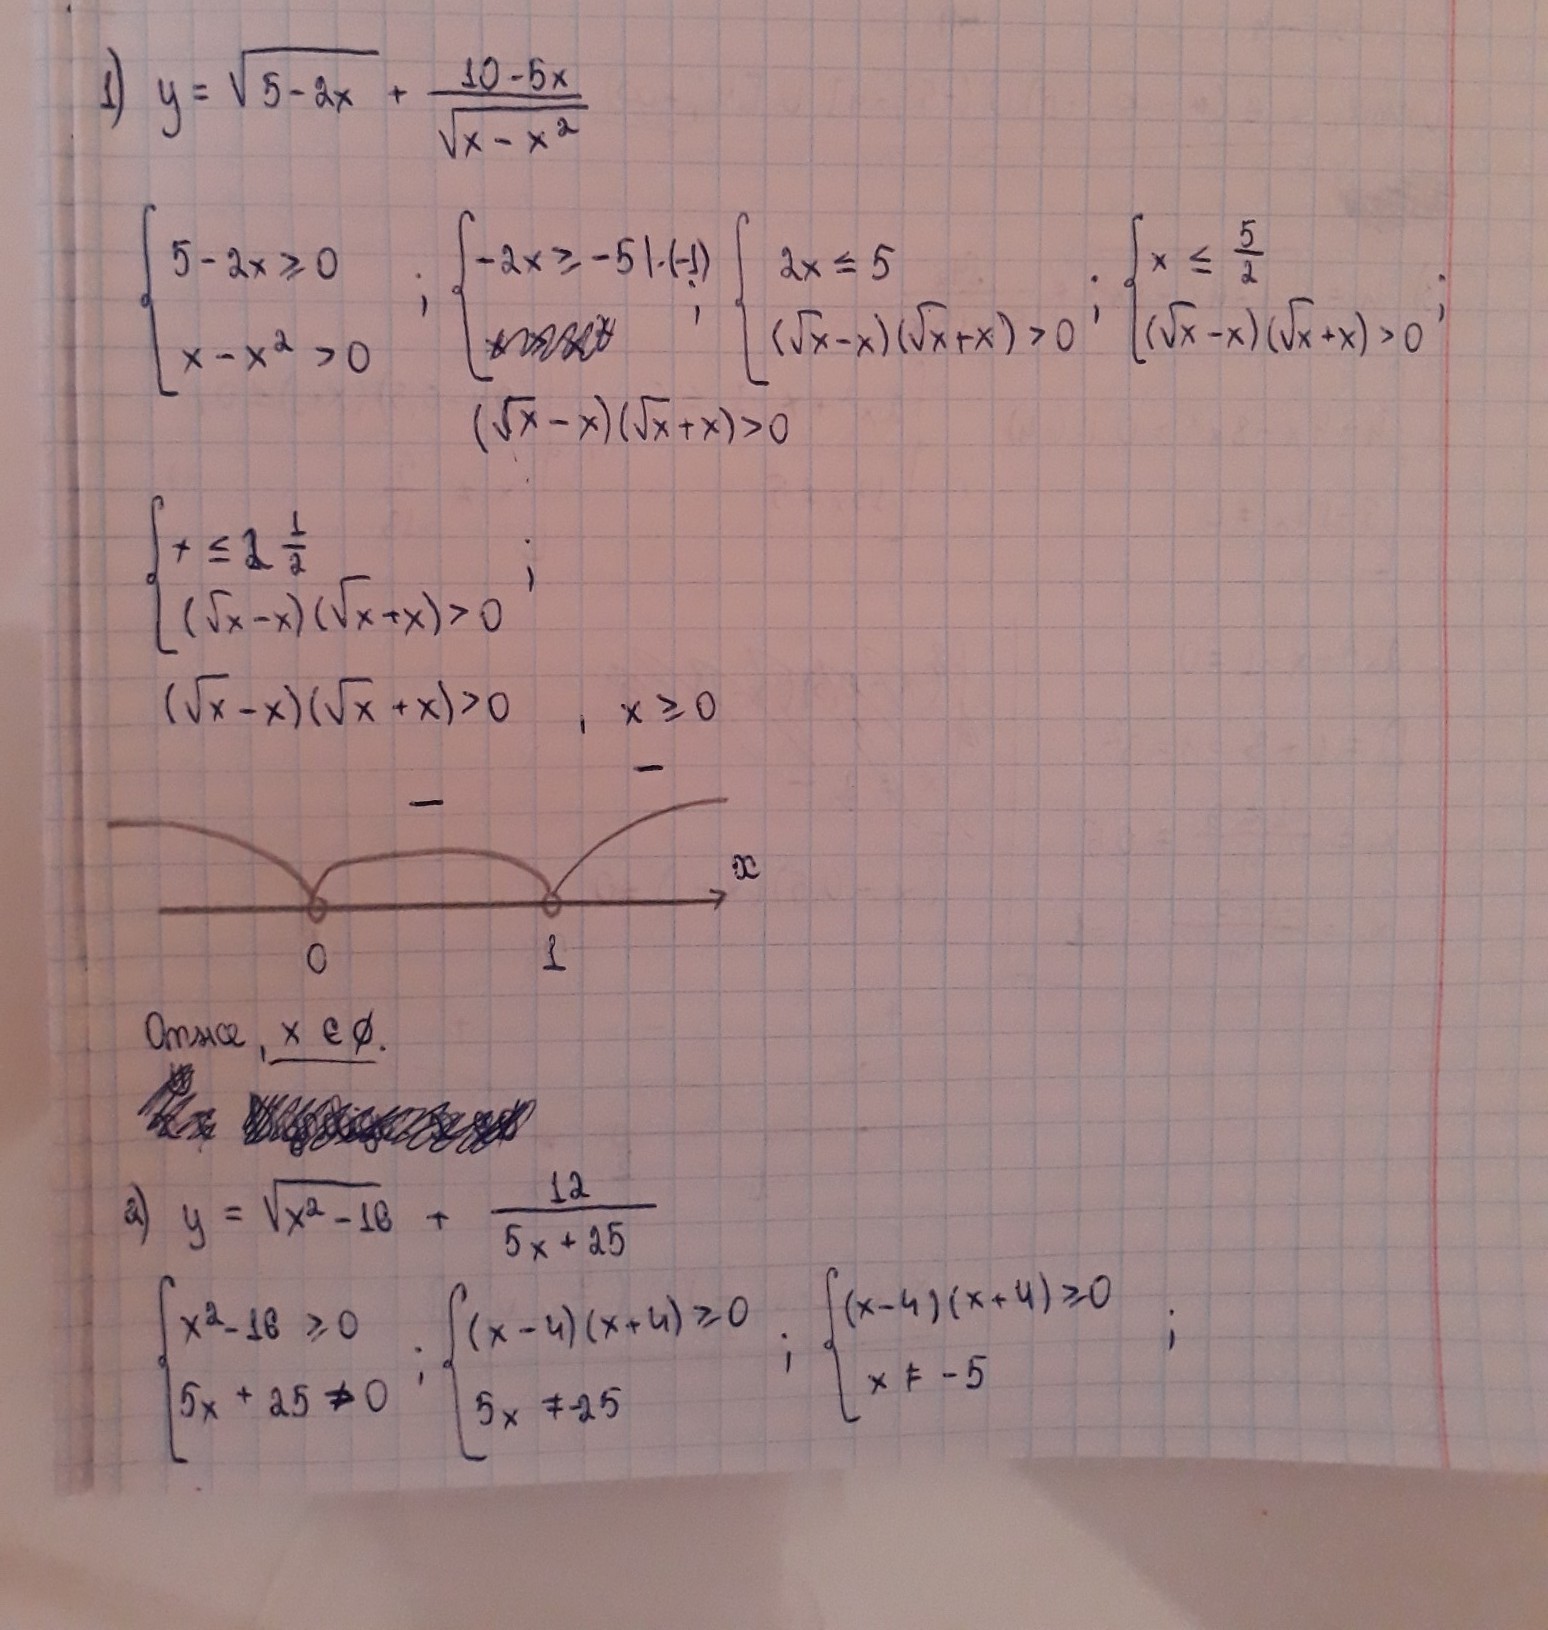 1) y = √(5-2x) + (10-5x)/√(x-x²)
{ 5-2x ≥ 0 ; { -2x ≥ -5 |·(-1) ; { 2x ≤ 5 ; { x ≤ 5/2 ;
x-x² > 0 (√x-x)(√x+x) > 0 (√x-x)(√x+x) > 0
(√x-x)(√x+x) > 0
{ x ≤ 2 1/2 ;
(√x-x)(√x+x) > 0
(√x-x)(√x+x) > 0 , x ≥ 0
− −
x
0 1
Отже, x ∈ ∅.
2) y = √(x²-16) + 12/(5x+25)
{ x²-16 ≥ 0 ; { (x-4)(x+4) ≥ 0 ; { (x-4)(x+4) ≥ 0 ;
5x + 25 ≠ 0 5x ≠ -25 x ≠ -5